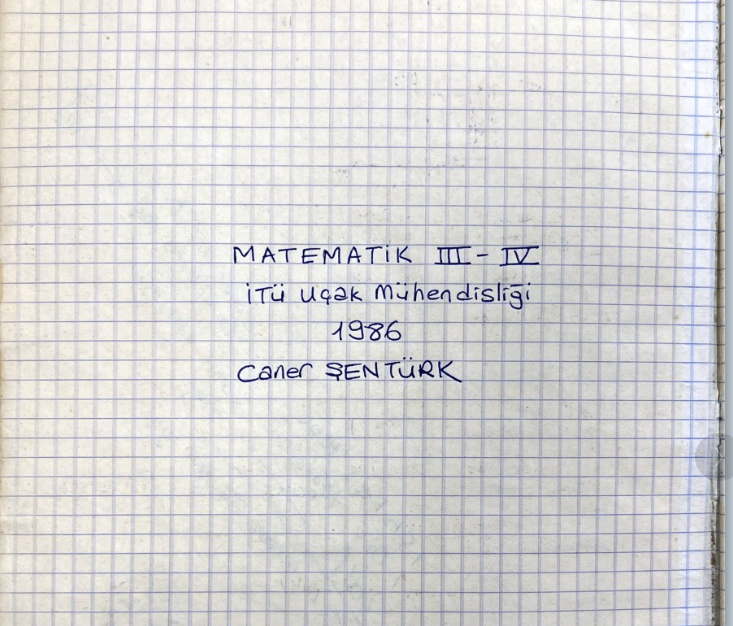 MATEMATİK III - IV
İTÜ Uçak Mühendisliği
1986
Caner ŞENTÜRK